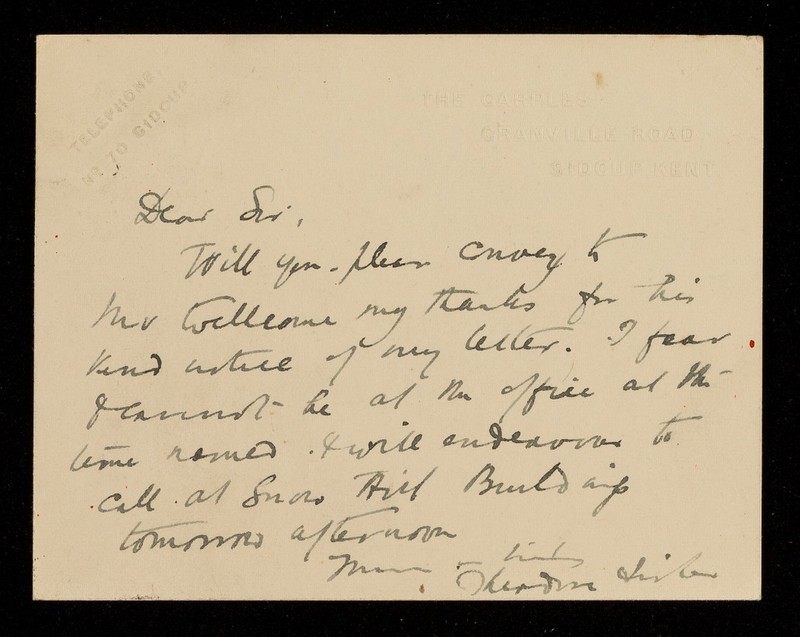 TELEPHONE,
No 70 SIDCUP
THE GABBLES
GRANVILLE ROAD
SIDCUP KENT
Dear Sir,
Will you please convey to
Mr Wellcome my thanks for his
kind notice of my letter. I fear
I cannot be at the office at the
time named. I will endeavour to
call at Snow Hill Buildings
tomorrow afternoon
Theodore